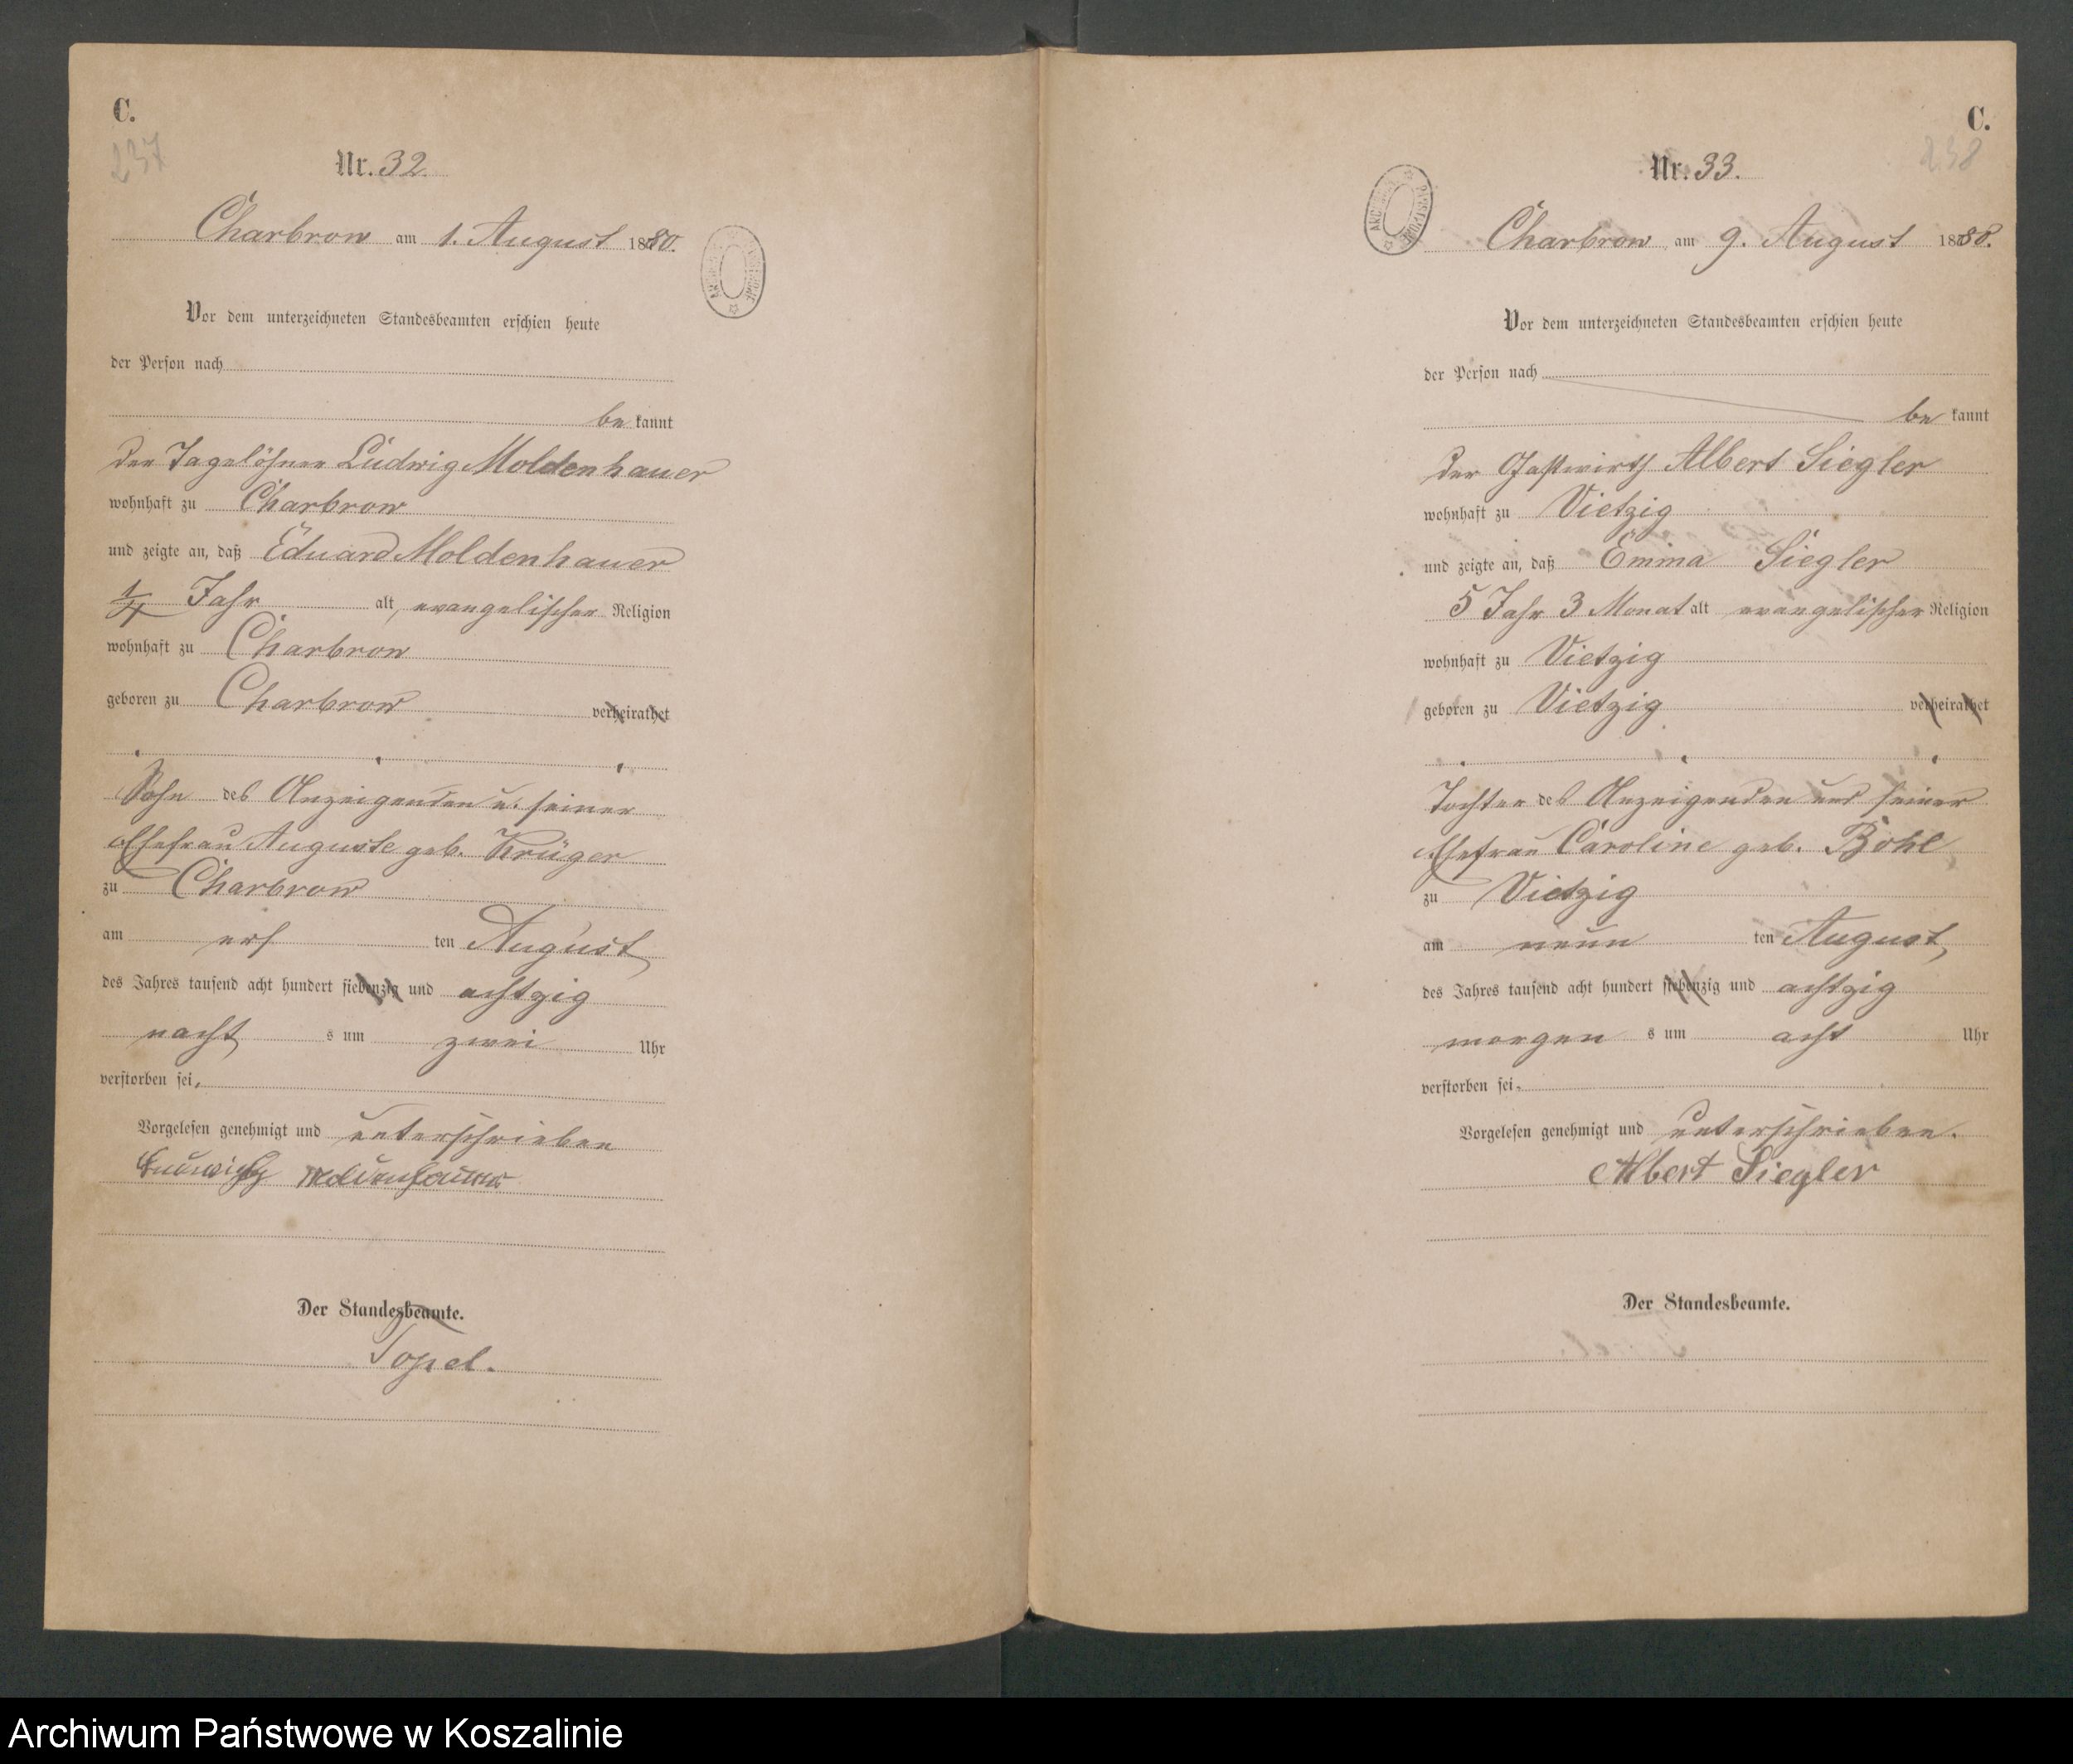 C.
237
Nr. 32.
Charbrow am 1. August 1880.
Vor dem unterzeichneten Standesbeamten erschien heute
der Person nach
be kannt
der Tagelöhner Ludwig Moldenhauer
wohnhaft zu Charbrow
und zeigte an, daß Eduard Moldenhauer
1/4 Jahr alt, evangelischer Religion
wohnhaft zu Charbrow
geboren zu Charbrow verheirathet
Sohn des Anzeigenden u. seiner
Ehefrau Auguste geb. Krüger
zu Charbrow
am ers ten August
des Jahres tausend acht hundert siebenzig und achtzig
nacht s um zwei Uhr
verstorben sei,
Vorgelesen genehmigt und unterschrieben
Ludwig Moldenhauer
Der Standesbeamte.
Topel.
C.
238
Nr. 33.
Charbrow am 9. August 1880.
Vor dem unterzeichneten Standesbeamten erschien heute
der Person nach
be kannt
der Gastwirth Albert Siegler
wohnhaft zu Vietzig
und zeigte an, daß Emma Siegler
5 Jahr 3 Monat alt evangelischer Religion
wohnhaft zu Vietzig
geboren zu Vietzig verheirathet
Tochter des Anzeigenden und seiner
Ehefrau Caroline geb. Bohl
zu Vietzig
am neun ten August,
des Jahres tausend acht hundert siebenzig und achtzig
morgen s um acht Uhr
verstorben sei,
Vorgelesen genehmigt und unterschrieben.
Albert Siegler
Der Standesbeamte.
Archiwum Państwowe w Koszalinie